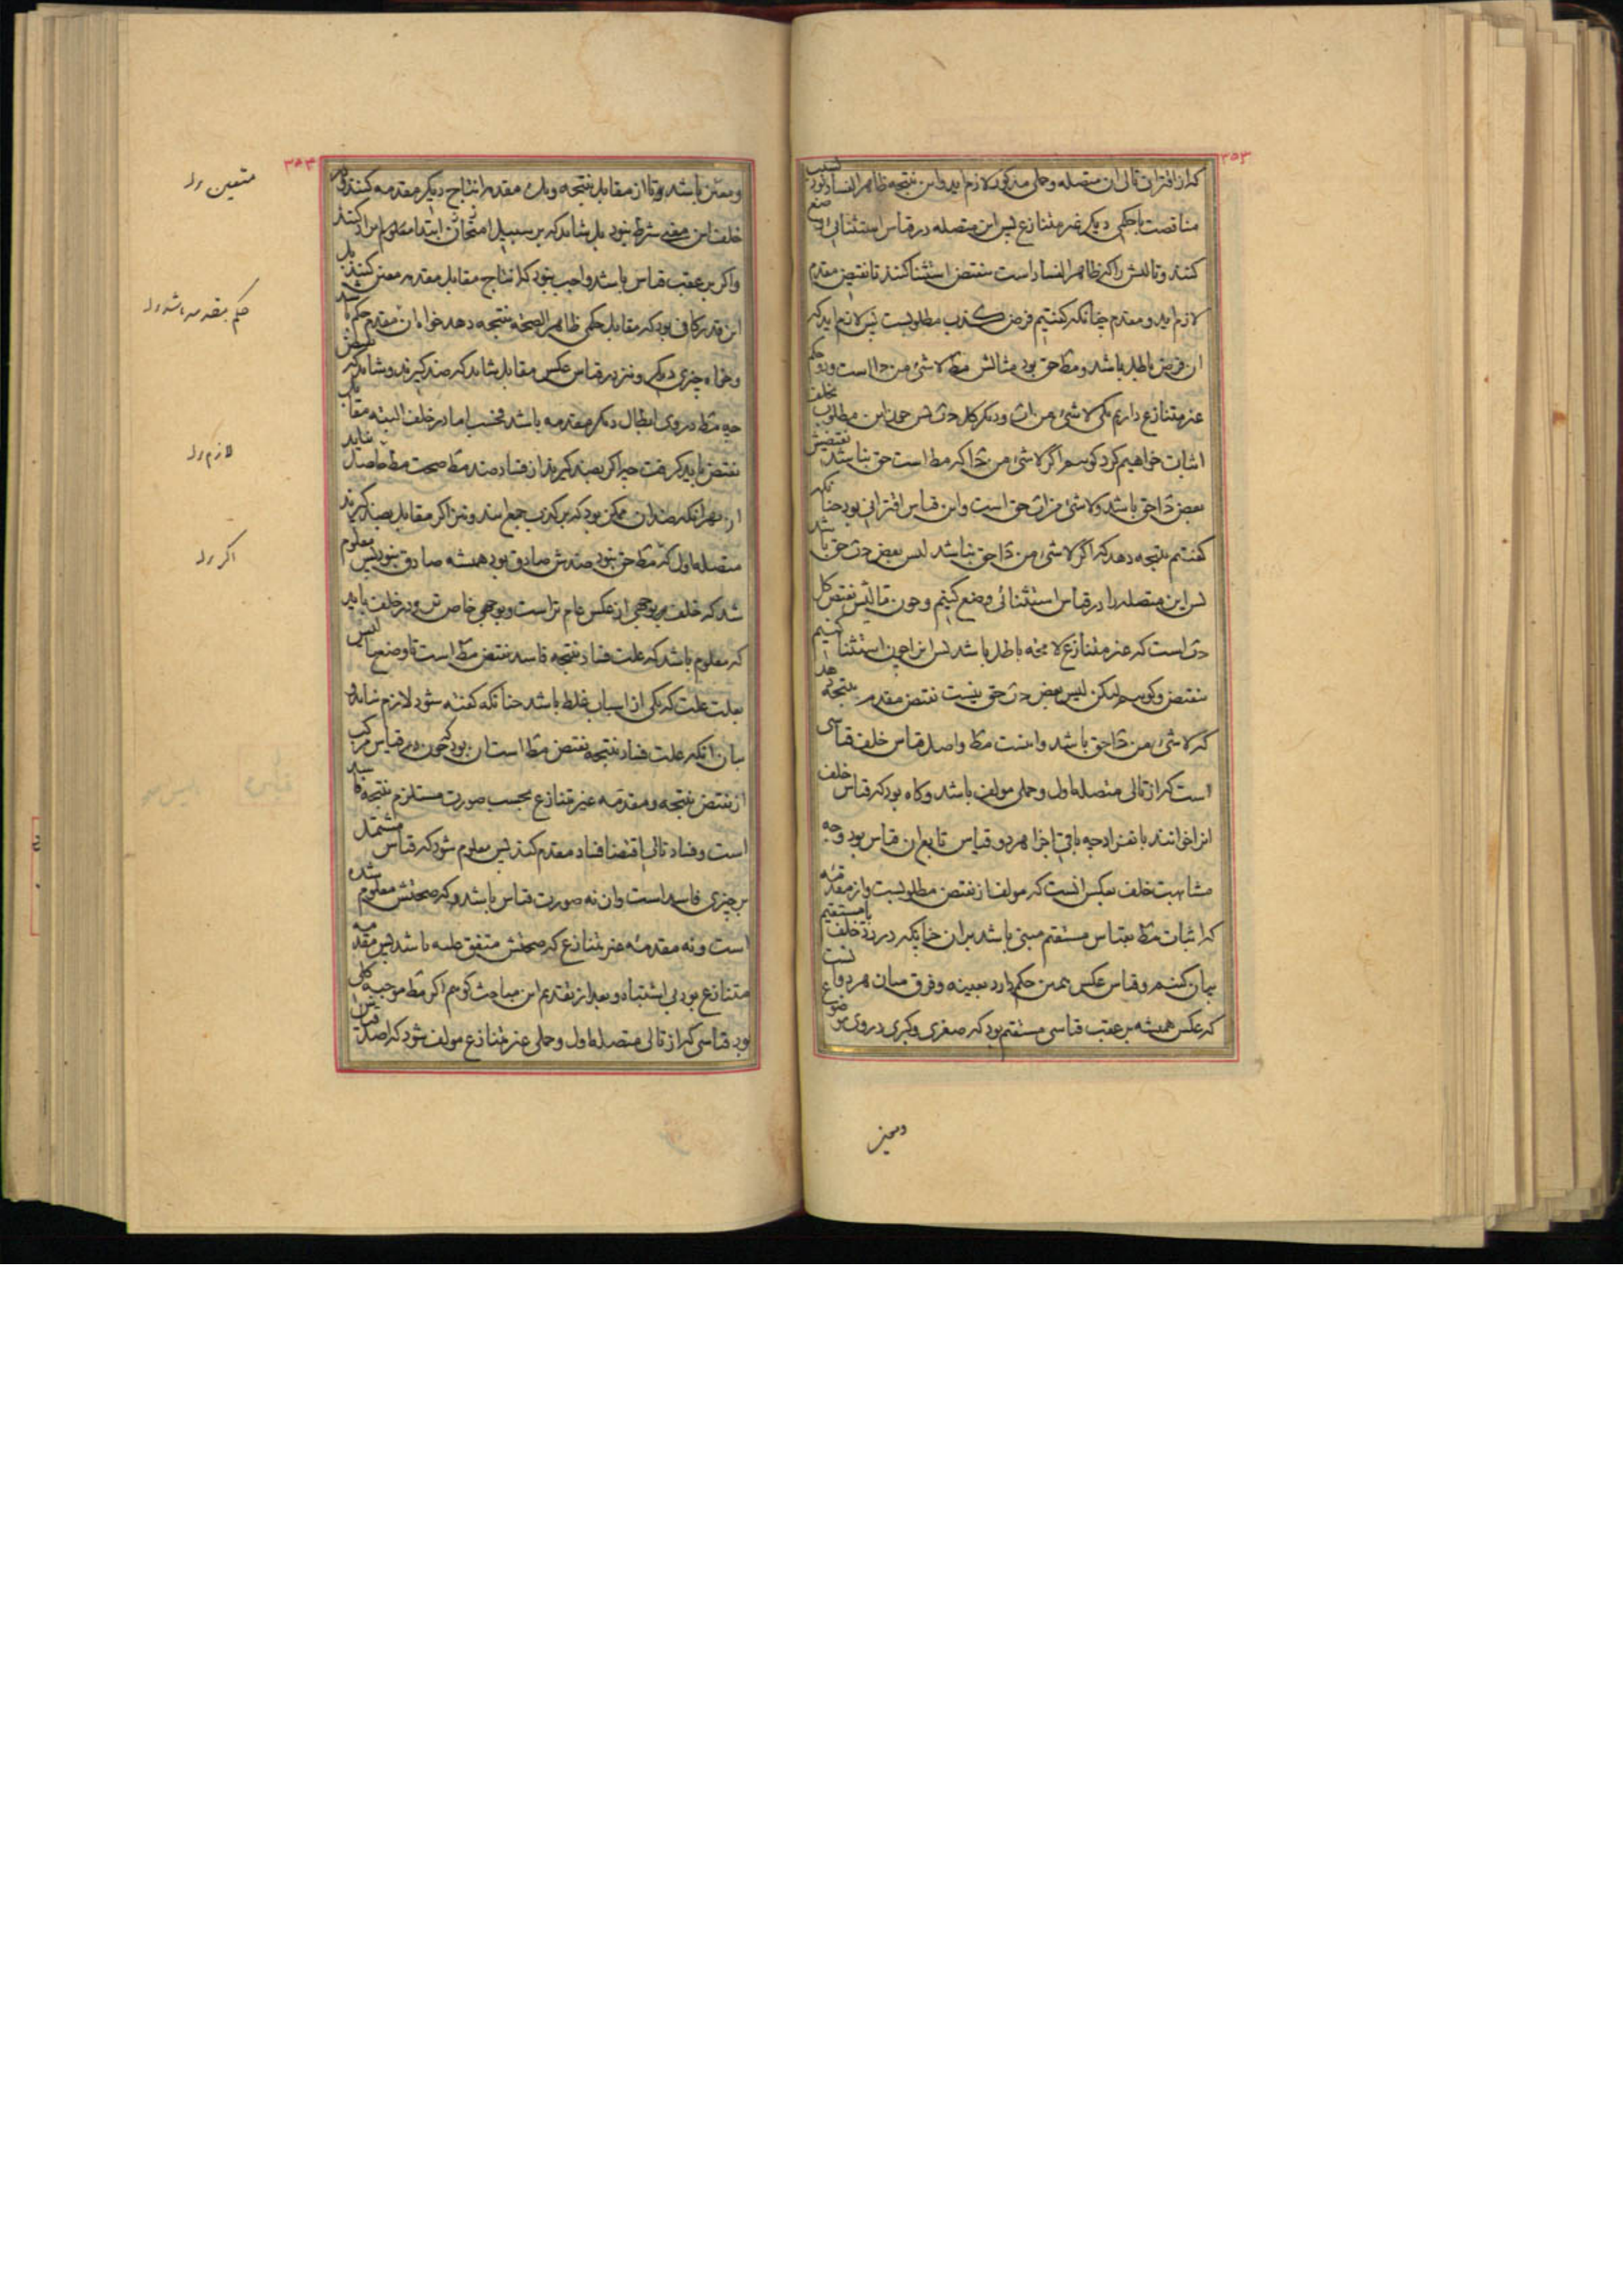 ۳۵۳
که از اقتران تالی ان متصله و حملی مذکور لازم اید و این نتیجه ظاهر الفساد بود بسبب
مناقضت با حکمی دیگر غیر متنازع پس این متصله در قیاس استثنائی وضع
کنند و تالیش را که ظاهر الفساد است بنقیض استثنا کنند تا نقیض مقدم
لازم اید و مقدم چنانکه گفتیم فرض کذب مطلوبست پس لازم اید که
ان فرض باطل باشد و مط حق بود مثالش مط لاشئ من ا است و دو حکم
غیر متنازع داریم یکی لاشئ من و دیگر کل پس چون این مطلوب بخلف
اثبات خواهیم کرد کوییم اگر لاشئ من که مط است حق نباشد نقیضش
بعض حق باشد و لاشئ من حق است و این قیاس اقترانی بود چنانکه
گفتیم نتیجه دهد که اگر لاشئ من حق نباشد لیس بعض حق باشد
پس این متصله را در قیاس استثنائی وضع کنیم و چون تالیش نقیض کل
است که غیر متنازع لا محه باطل باشد پس انرا چون استثنا کنیم
بنقیض و کوییم لیکن لیس بعض حق نیست نقیض مقدم نتیجه دهد
که لاشئ من حق باشد و اینست مط و اصل قیاس خلف قیاسی
است که از تالی متصله اول و حملی مولف باشد و گاه بود که قیاس خلف
انرا خوانند بانفراد چه باقی اجزا هر دو قیاس تابع ان قیاس بود و وجه
مشابهت خلف بعکس انست که مولف از نقیض مطلوبست و از مقدمه
که اثبات مط بقیاس مستقیم مبنی باشد بران چنانکه در رد خلف با مستقیم
بیان کنیم و قیاس عکس همین حکم دارد بعینه و فرق میان هر دو انست
که عکس همیشه بر عقب قیاسی مستقیم بود که صغری و کبری در وی موضوع
ومعین
۳۵۴
و معین باشد و تا از مقابل نتیجه و یک مقدمه انتاج دیگر مقدمه کنند و در
خلف این معنی شرط نبود بل شاید که بر سبیل امتحان ابتدا معلوم ایراد کنند
و اگر بر عقب قیاس باشد واجب نبود که انتاج مقابل مقدمه معین کنند بل
این قدر کافی بود که مقابل حکمی ظاهر الصحه نتیجه دهد خواه ان مقدم حکم باشد
و خواه چیزی دیگر و نیز در قیاس عکس مقابل شاید که ضد گیرند و شاید که نقیض
چه مط در وی ابطال دیگر مقدمه باشد فحسب اما در خلف البته مقابل
نقیض باید گرفت چه اگر بضد گیرند از فساد ضد مط صحت مط حاصل نیاید
از بهر انکه ضدان ممکن بود که بر کذب جمع ایند و نیز اگر مقابل بضد گیرند
متصله اول که مط حق نبود ضدش صادق بود همیشه صادق نبود پس معلوم
شد که خلف بوجهی از عکس عام تر است و بوجهی خاص تر و در خلف باید
که معلوم باشد که علت فساد نتیجه فاسد نقیض مط است تا وضع ما لیس
بعلت علت که یکی از اسباب غلط باشد چنانکه گفته شود لازم نیاید و
بیان انکه علت فساد نتیجه نقیض مط است ان بود که چون در قیاس مرکب
از نقیض نتیجه و مقدمه غیر متنازع بحسب صورت مستلزم نتیجه فاسد
است و فساد تالی اقتضا فساد مقدم کند پس معلوم شود که قیاس مشتمل
بر چیزی فاسد است و ان نه صورت قیاس باشد که صحتش معلوم شده
است و نه مقدمه غیر متنازع که صحتش متفق علیه باشد پس مقدمه
متنازع بود بی اشتباه و بعد از تقدیم این مباحث گوییم اگر مط موجبه کلی
بود قیاسی که از تالی متصله اول و حملی غیر متنازع مولف شود که اصل قیاس
متعین ول
حکم مقدمه باشد ول
لازم ول
اگر ول